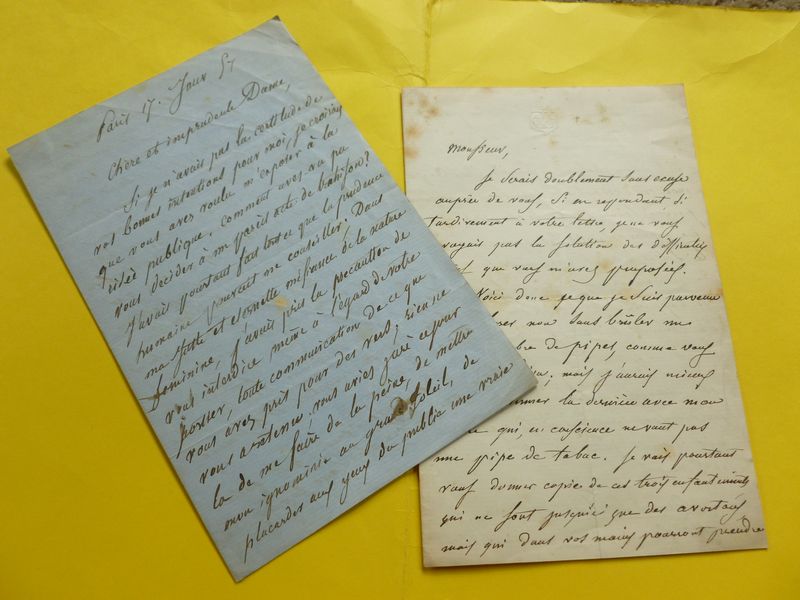 Paris 17. Janv 57
Chère et imprudente Dame,
Si je n'avais pas la certitude de
vos bonnes intentions pour moi, je croirais
que vous avez voulu m'exposer à la
risée publique. Comment avez-vu pu
vous décider à un pareil acte de trahison?
J'avais pourtant fait tout ce que la prudence
humaine pouvait me conseiller. Dans
ma juste et éternelle méfiance de la nature
féminine, j'avais pris la précaution de
vous interdire même à l'égard de votre
toute communication de ce que
vous avez pris pour des vers; rien ne
vous a retenue. vous aviez juré ce jour
là de me faire de la peine, de mettre
mon ignominie au grand soleil, de
placarder aux yeux du public une vraie
Monsieur,
Je serais doublement sans excuse
auprès de vous, si en répondant si
tardivement à votre lettre, je ne vous
pas la solution des
que vous m'avez proposées.
Voici donc ce que je suis parvenu
non sans brûler
de pipes, comme vous
mais j'aurais mieux
la dernière avec mon
qui, en conscience ne vaut pas
une pipe de tabac. Je vais pourtant
vous donner copie de ces trois enfantements
qui ne sont jusqu'ici que des avortons
mais qui dans vos mains pourront prendre